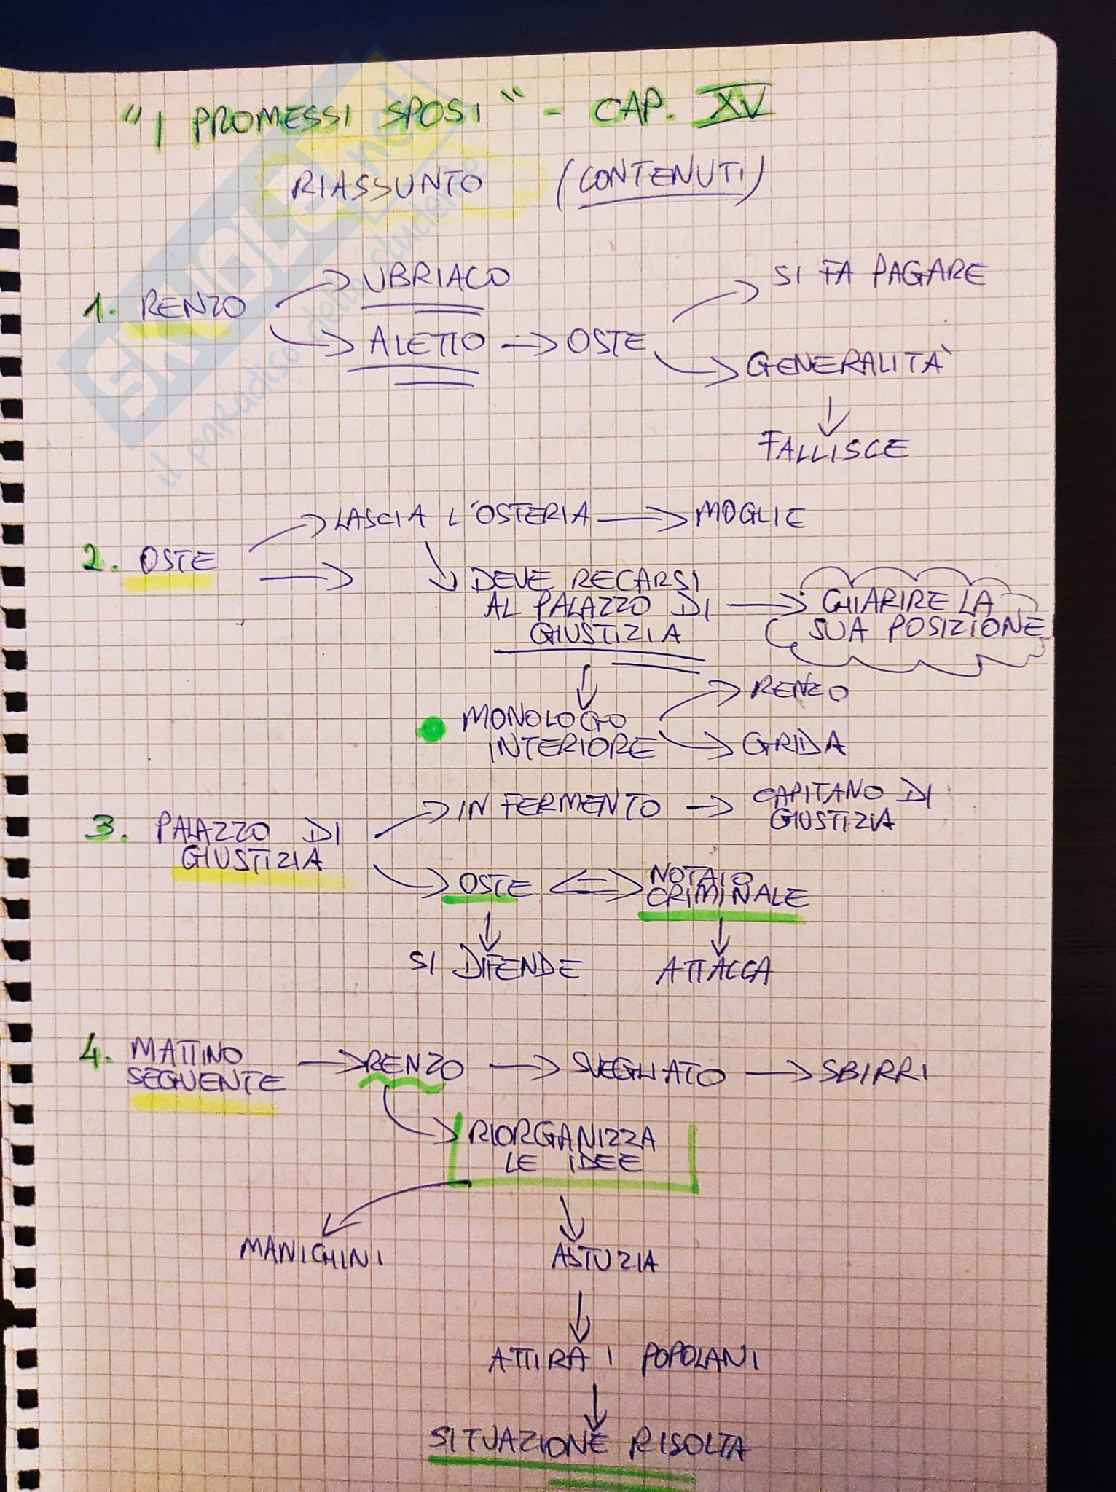 "I PROMESSI SPOSI" - CAP. XV
RIASSUNTO (CONTENUTI)
SKUOLA.net
il paradiso dello studente
1. RENZO → UBRIACO
→ A LETTO → OSTE → SI FA PAGARE
→ GENERALITÀ
↓
FALLISCE
2. OSTE → LASCIA L'OSTERIA → MOGLIE
→ DEVE RECARSI
AL PALAZZO DI → CHIARIRE LA
GIUSTIZIA SUA POSIZIONE
↓
MONOLOGO → RENZO
INTERIORE → GRIDA
3. PALAZZO DI → IN FERMENTO → CAPITANO DI
GIUSTIZIA GIUSTIZIA
→ OSTE ↔ NOTAIO
CRIMINALE
↓ ↓
SI DIFENDE ATTACCA
4. MATTINO → RENZO → SVEGLIATO → SBIRRI
SEGUENTE
→ RIORGANIZZA
LE IDEE
MANICHINI ASTUZIA
↓
ATTIRA I POPOLANI
↓
SITUAZIONE RISOLTA